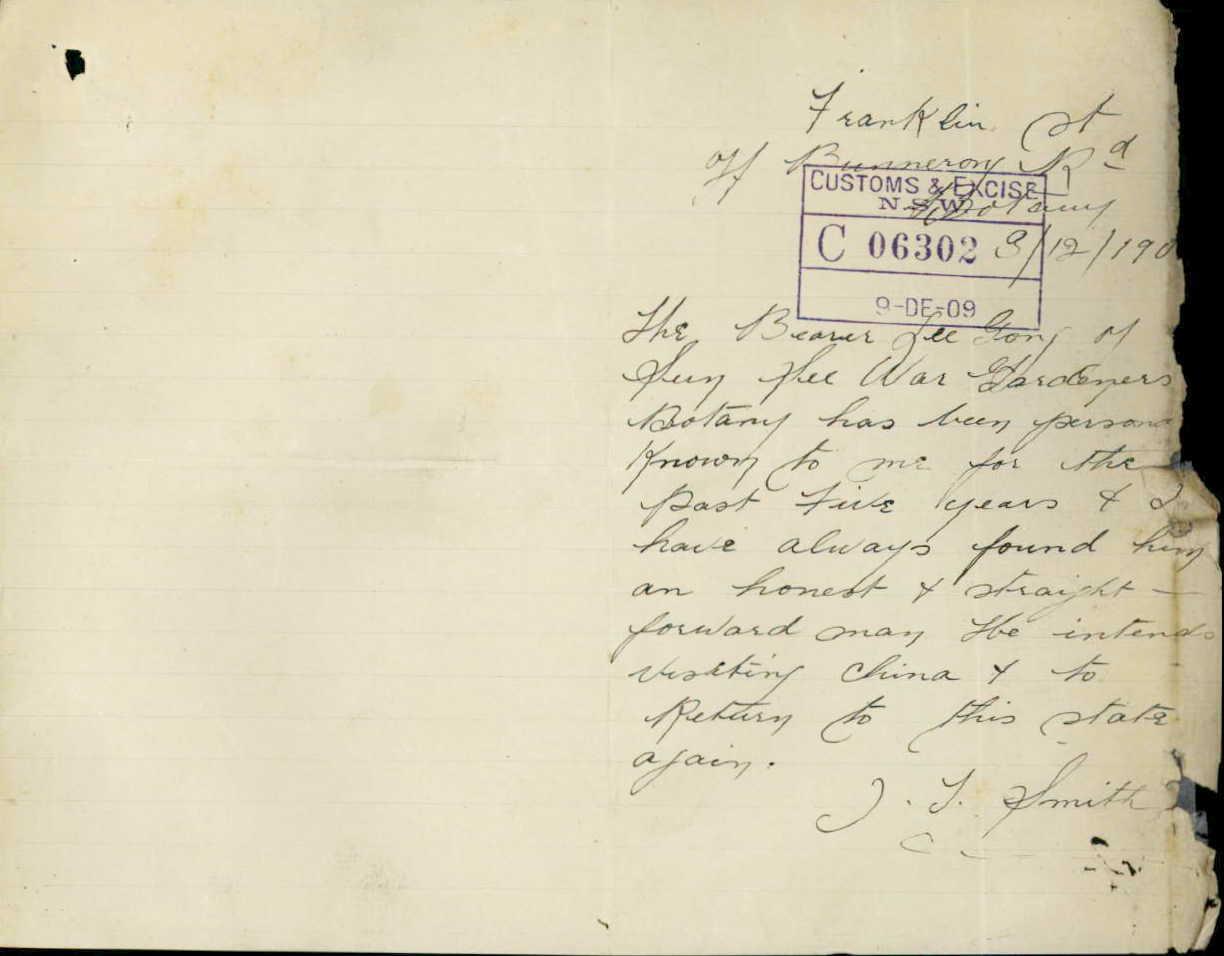 Franklin St
off Bunnerong Rd
Botany
CUSTOMS & EXCISE
N S W
C 06302
9-DE-09
3/12/190
The Bearer Lee Gong of
Sun Lee War Gardeners
Botany has been persona
Known to me for the
past Five years & I
have always found him
an honest & straight-
forward man He intends
visiting China & to
Return to this state
again.
J. T. Smith